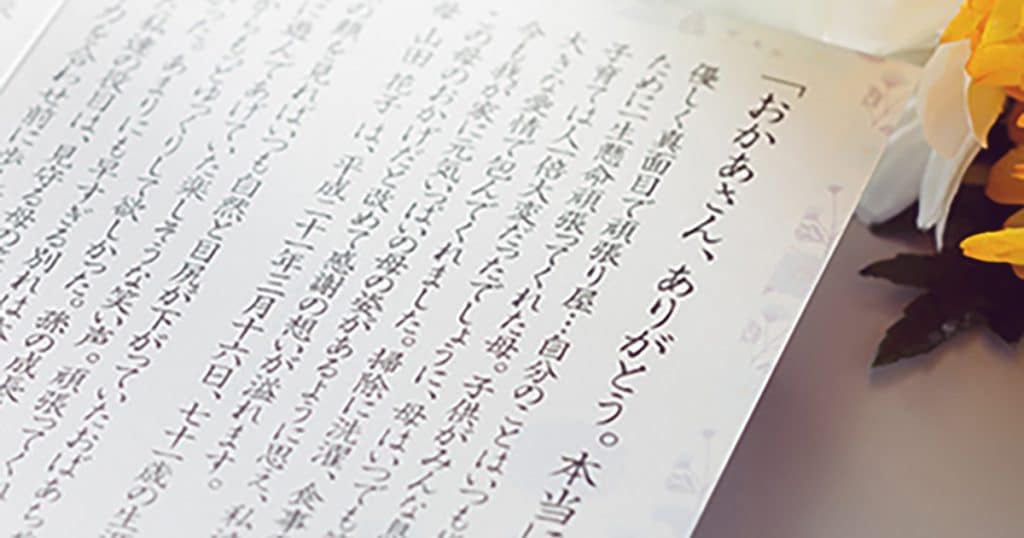 「おかあさん、ありがとう。本当に
優しく真面目で頑張り屋…自分のことはいつも
ために一生懸命頑張ってくれた母。子供がみんな
子育ては人一倍大変だったでしょうに、母はいつでも
大きな愛情で包んでくれました。掃除に洗濯、食事
今も我が家に元気いっぱいの母の姿があるように思え、私
この母のおかげだと改めて感謝の想いが溢れます。
母 山田 恵子 は、平成二十一年三月十六日、七十一歳の生
の顔を見ればいつも自然と目尻が下がっていたおばあち
に遊んであげていた楽しそうな笑い声。頑張ってくれ
ゆっくりして欲しかった。孫の成長
あまりにも早すぎる別れは
私達の役目は、見守る母の
力を合わせ前に歩